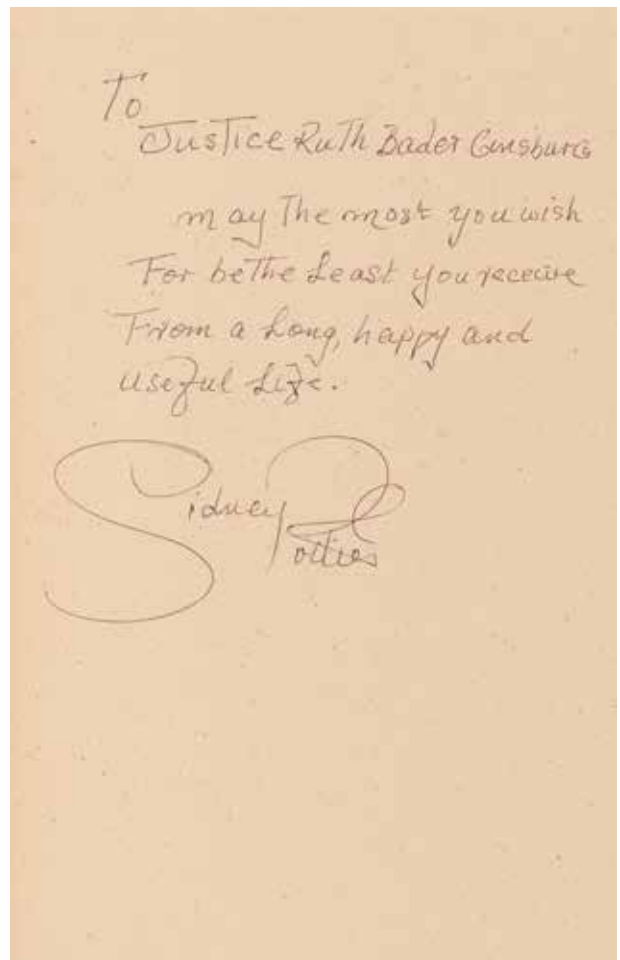 To
Justice Ruth Bader Ginsburg
may the most you wish
For be the Least you receive
From a Long, happy and
useful Life.
Sidney
Poitier